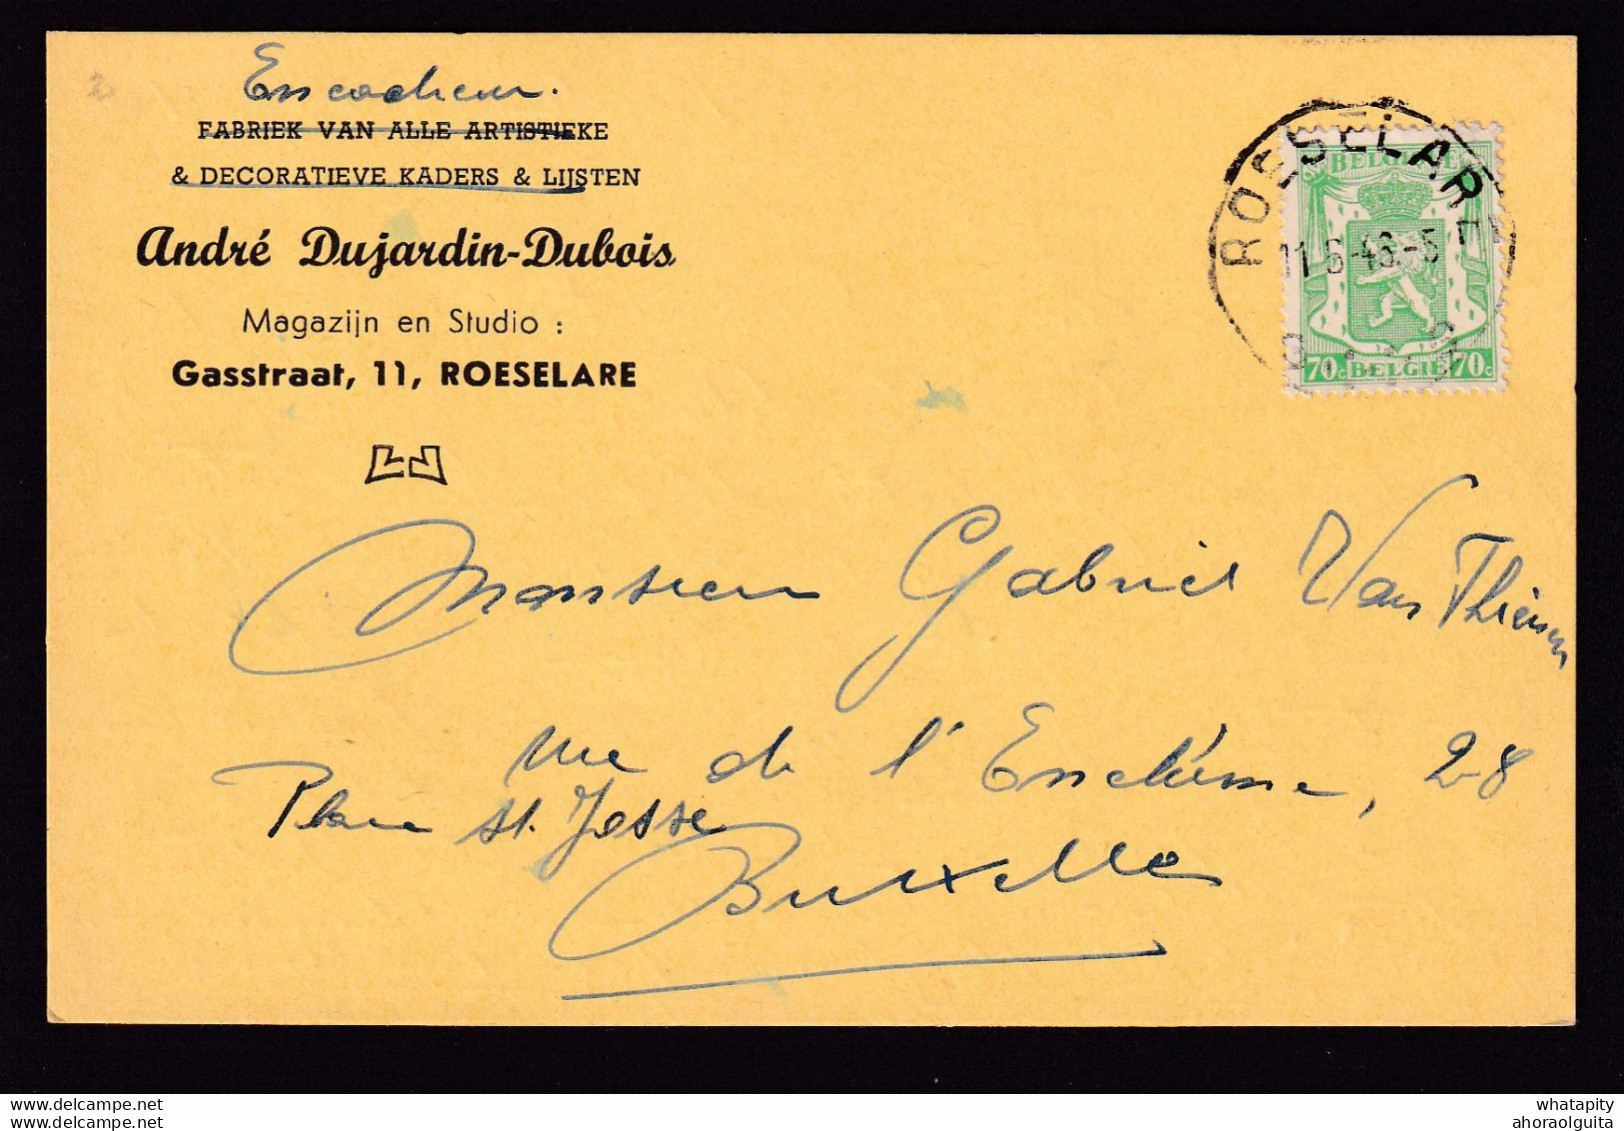 Encadreur.
FABRIEK VAN ALLE ARTISTIEKE
& DECORATIEVE KADERS & LIJSTEN
André Dujardin-Dubois
Magazijn en Studio :
Gasstraat, 11, ROESELARE
ROESELARE
11 6-46.-5
BELGIQUE
70c BELGIE 70c
Monsieur Gabriel Van Thienen
rue de l'Enclume, 28
Place St. Josse
Bruxelles
whatapity
ahoraolguita